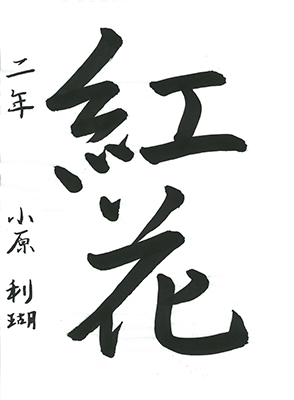 紅花
二年 小原利瑚